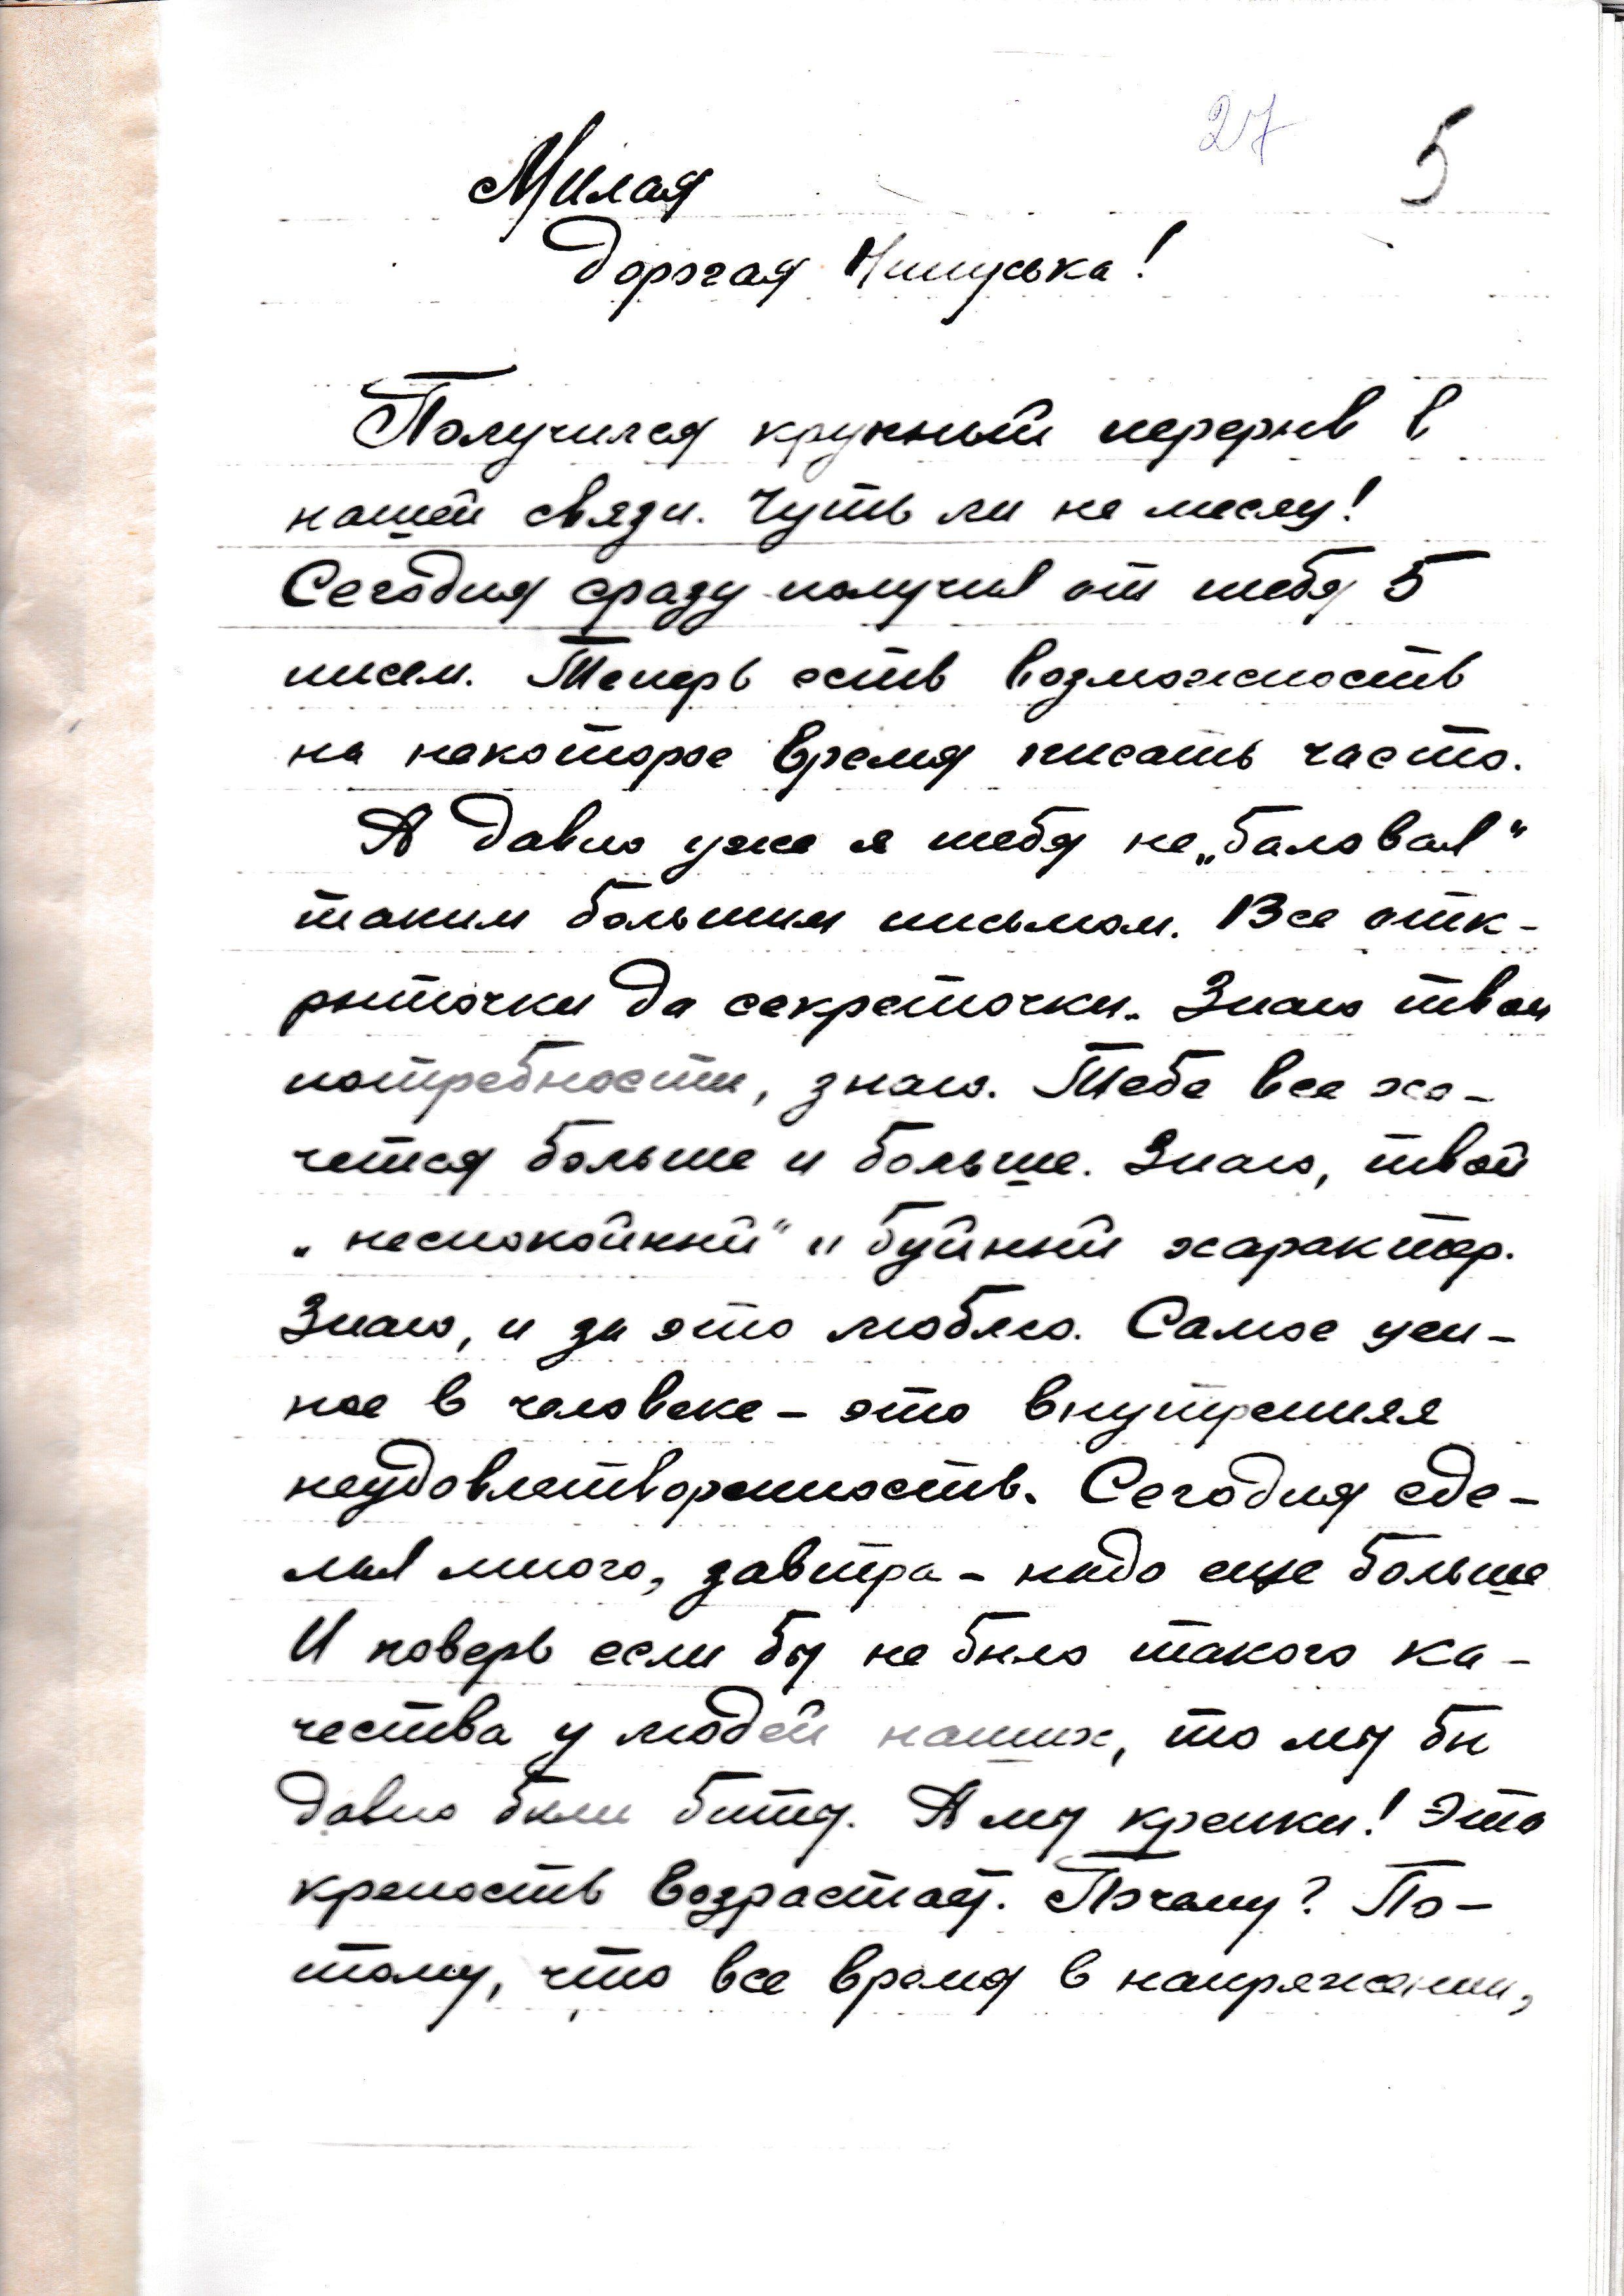 27 5
Милая
Дорогая Нинуська!
Получился крупный перерыв в
нашей связи. Чуть ли не месяц!
Сегодня сразу получил от тебя 5
писем. Теперь есть возможность
на некоторое время писать часто.
А давно уже я тебя не „баловал“
таким большим письмом. Все отк-
рыточки да секреточки. Знаю твои
потребности, знаю. Тебе все хо-
чется больше и больше. Знаю, твой
„неспокойный“ и буйный характер.
Знаю, и за это люблю. Самое цен-
ное в человеке - это внутренняя
неудовлетворенность. Сегодня сде-
лал много, завтра - надо еще больше
И поверь если бы не было такого ка-
чества у людей наших, то мы бы
давно были биты. А мы крепки! Эта
крепость возрастает. Почему? По-
тому, что все время в напряжении,